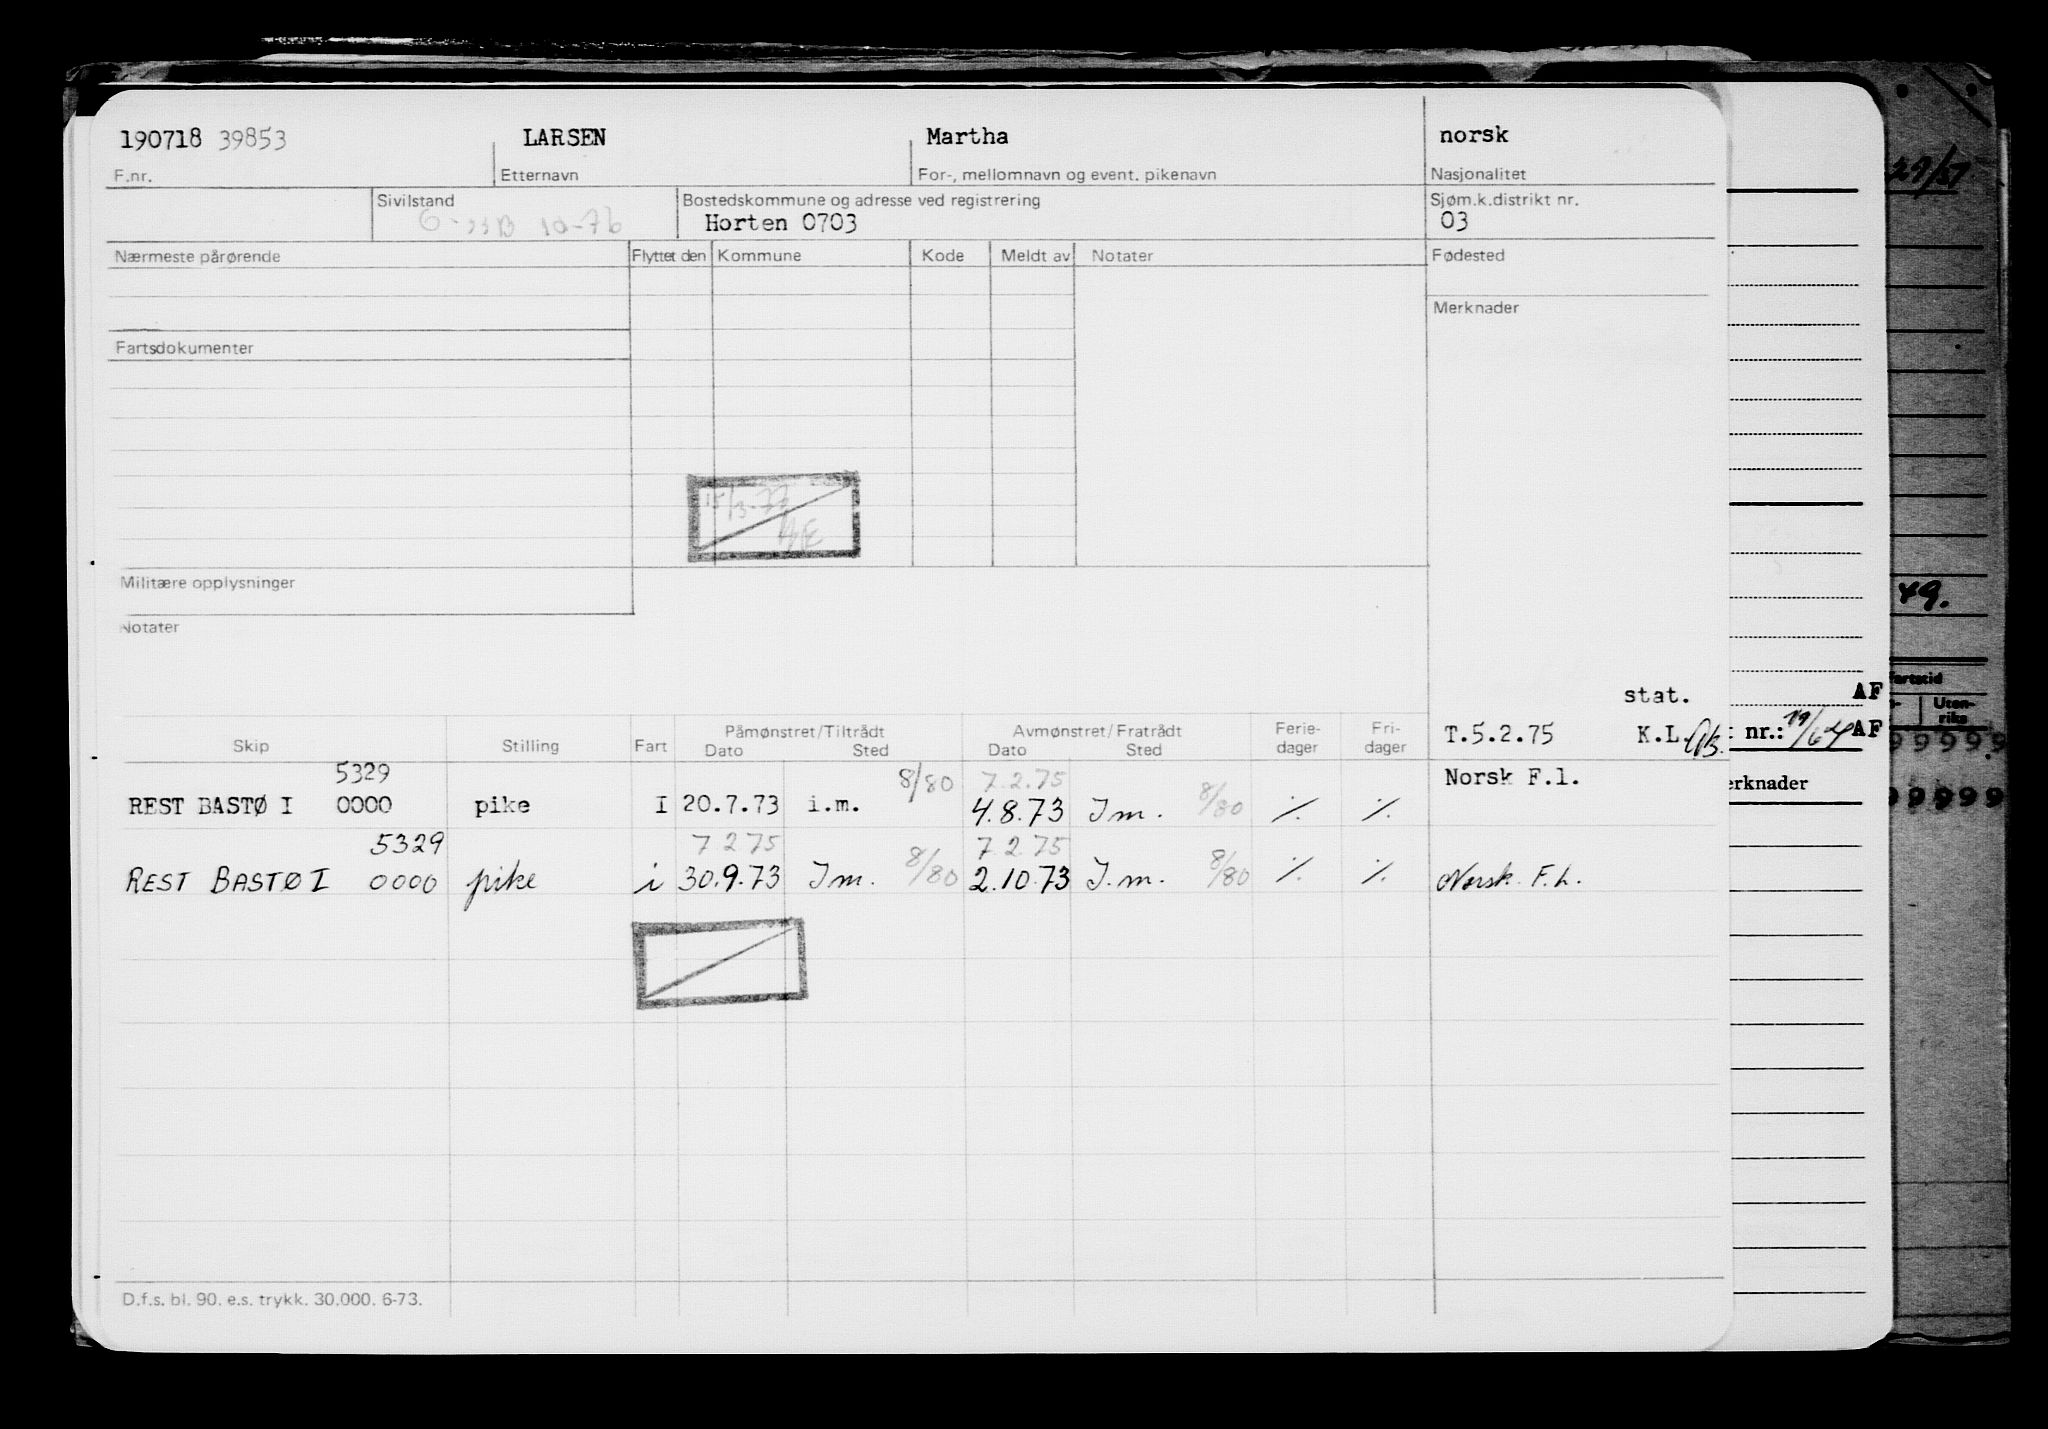 190718 39853 LARSEN Martha norsk
F.nr. Etternavn For-, mellomnavn og event. pikenavn Nasjonalitet
Sivilstand Bostedskommune og adresse ved registrering Sjøm.k.distrikt nr.
10-76 Horten 0703 03
Nærmeste pårørende Flyttet den Kommune Kode Meldt av Notater Fødested
Merknader
Fartsdokumenter
15/3-77
Militære opplysninger
Notater
stat.
T.5.2.75 K.L.
Skip Stilling Fart Påmønstret/Tiltrådt Dato Sted Avmønstret/Fratrådt Dato Sted Ferie-dager Fri-dager
5329 8/80 7.2.75 Norsk F.l.
REST BASTØ I 0000 pike I 20.7.73 i.m. 4.8.73 I m. 8/80 ·/. ·/.
5329 7 2 75 7 2 75
REST BASTØ I 0000 pike i 30.9.73 I m. 8/80 2.10.73 I.m. 8/80 ·/. ·/. Norsk F.L.
D.f.s. bl. 90. e.s. trykk. 30.000. 6-73.
AF
nr.: 19/64 AF
erknader
29/57
49.
fartstid
Uten-
riks
9 9 9 9 9
9 9 9 9 9